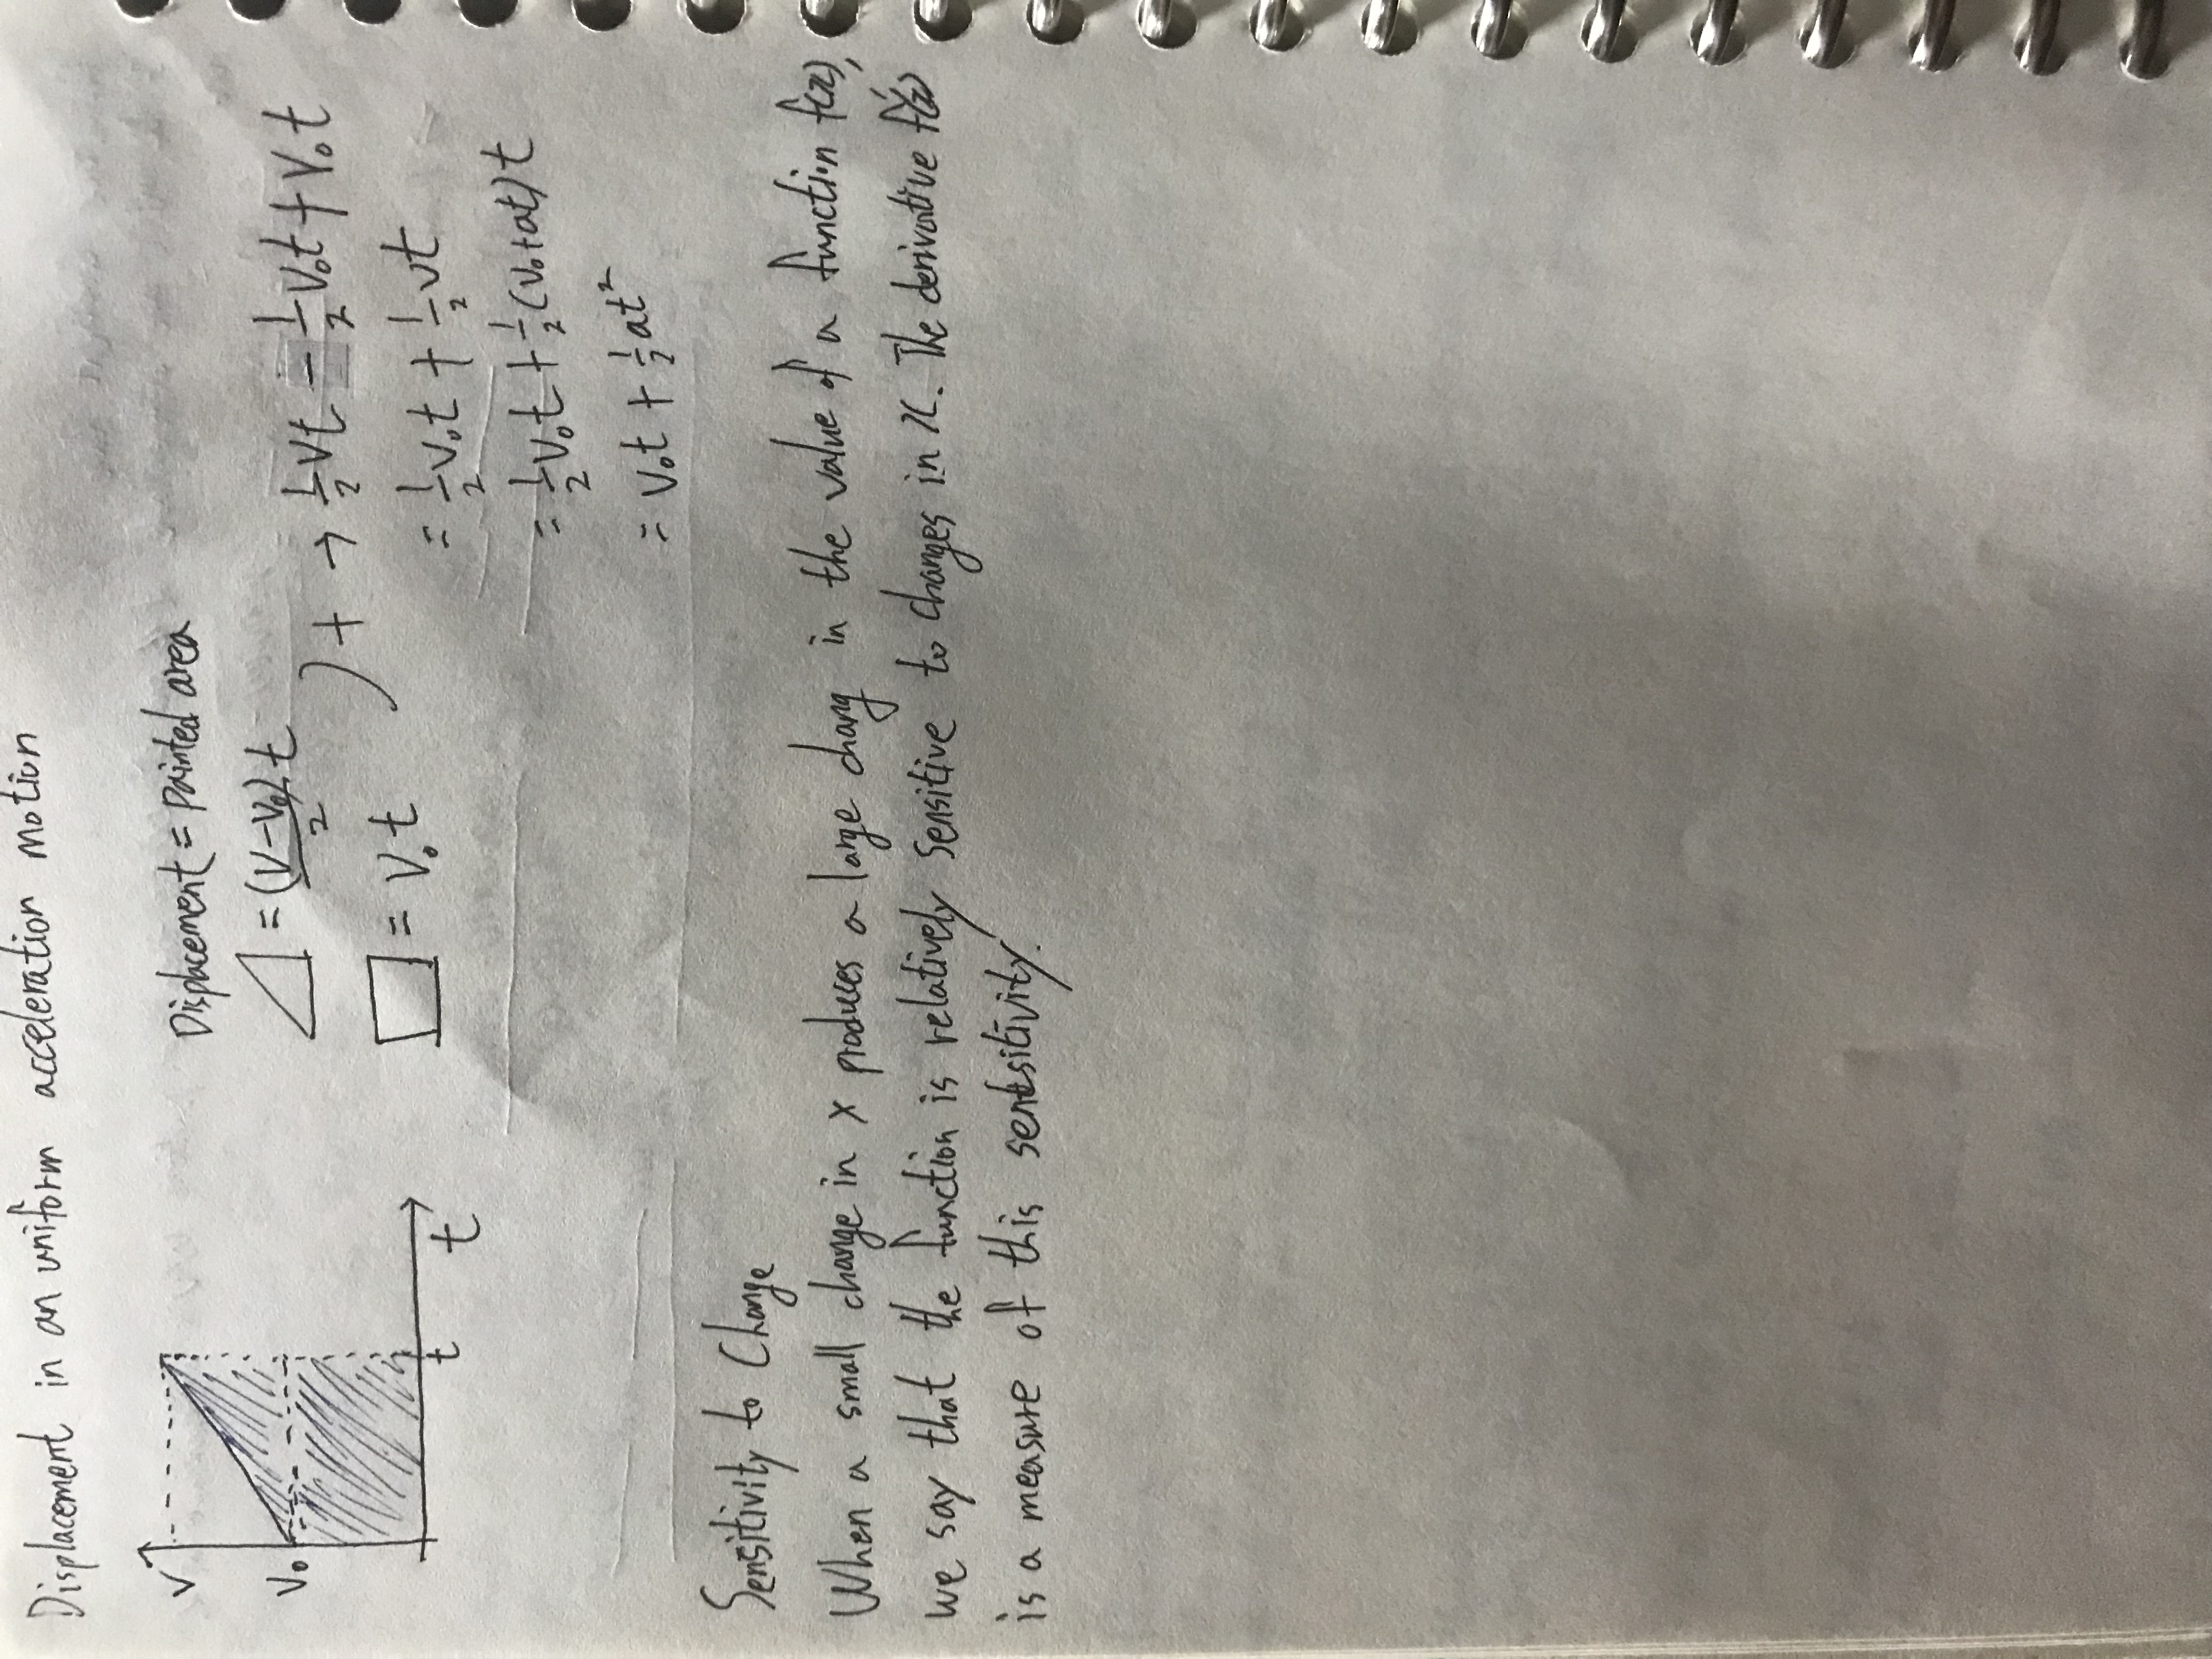 Displacement in an uniform acceleration motion
V
V₀
t
t
Displacement = painted area
△ = (V-V₀)/2 t
□ = V₀t
) + → 1/2 Vt - 1/2 V₀t + V₀t
= 1/2 V₀t + 1/2 Vt
= 1/2 V₀t + 1/2 (V₀+at)t
= V₀t + 1/2 at²
Sensitivity to Change
When a small change in x produces a large chang in the value of a function f(x),
we say that the function is relatively sensitive to changes in x. The derivative f'(x)
is a measure of this sensitivity.